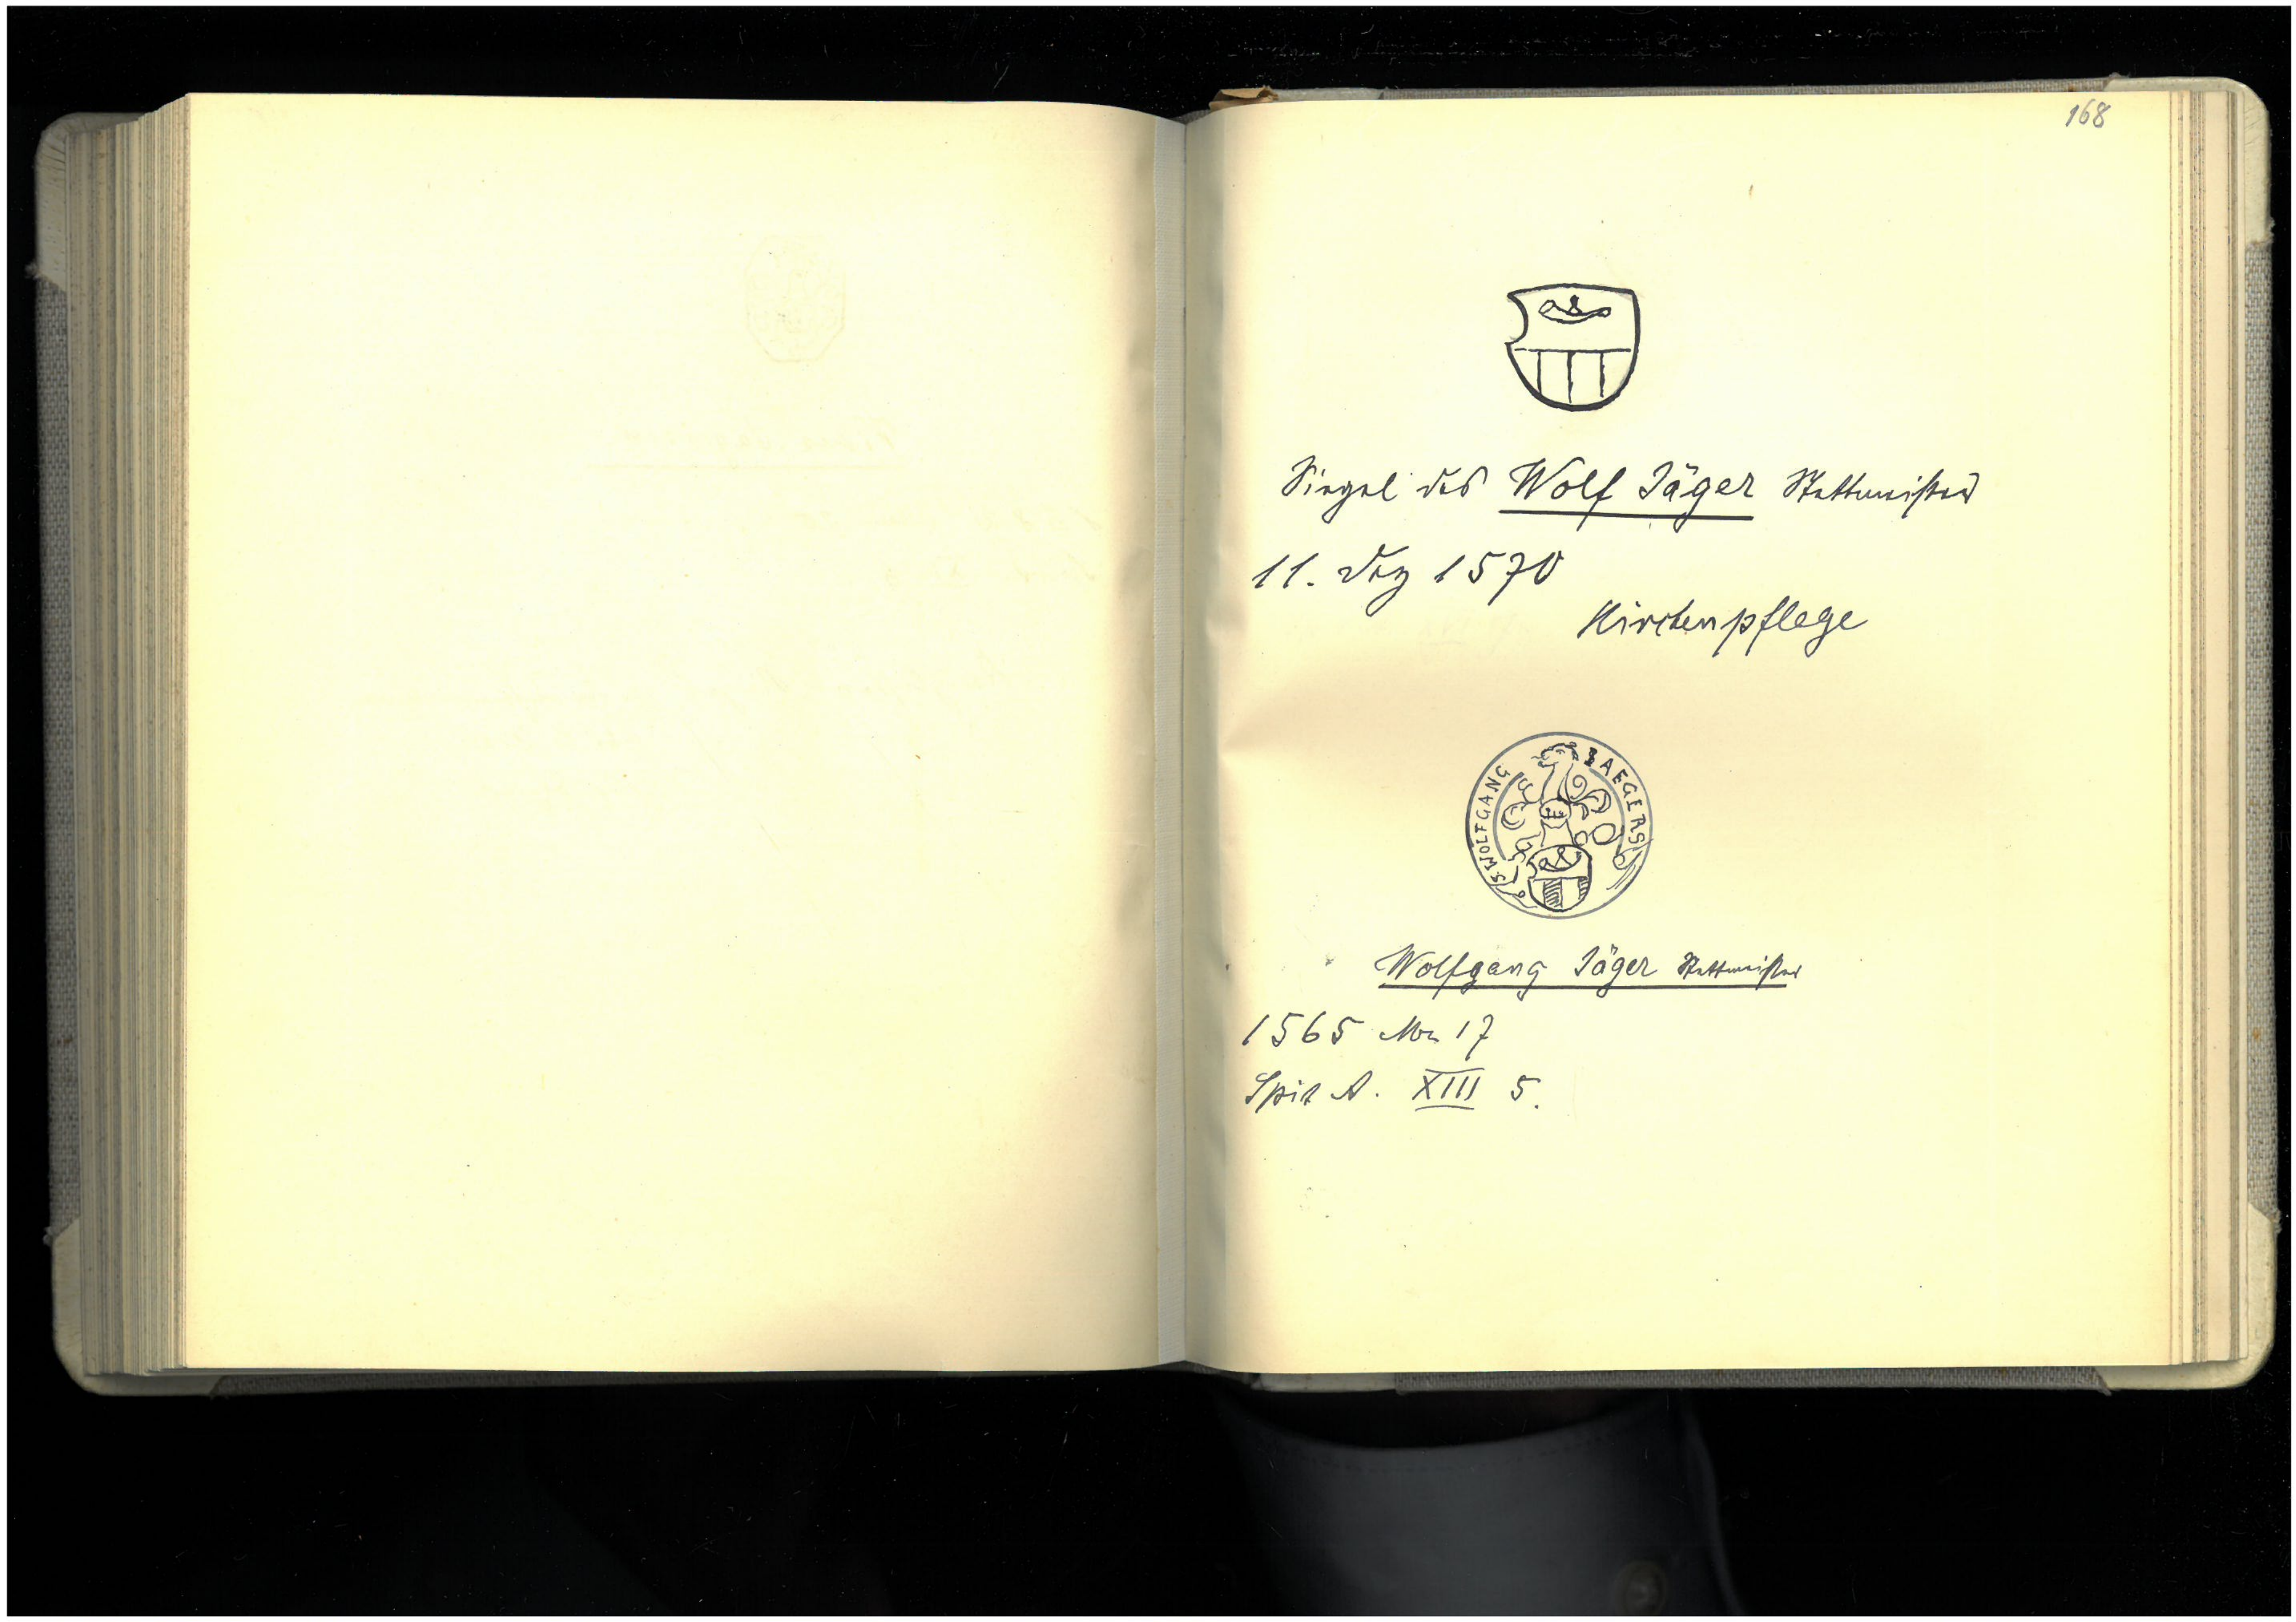 168
Siegel des Wolf Jäger Stettmeister
11. Dez 1570
Kirchenpflege
S WOLFGANG JAEGERS
Wolfgang Jäger Stettmeister
1565 Nr 17
Spit A. XIII 5.